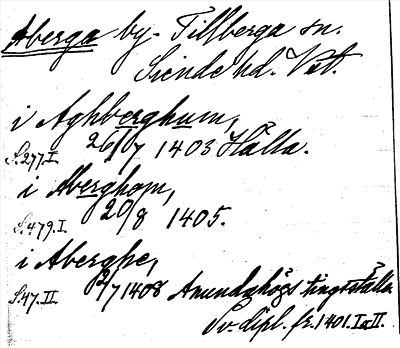 Åberga by. Tillberga sn.
Siende hd. Vst.
i Aghberghum,
S.277.I. 26/7 1403 Hälla.
i Aberghom,
S.479.I. 20/8 1405.
i Aberghe,
S.47.II. 2/7 1408 Anundahögs tingsställe
Sv. dipl. fr. 1401. I o. II.